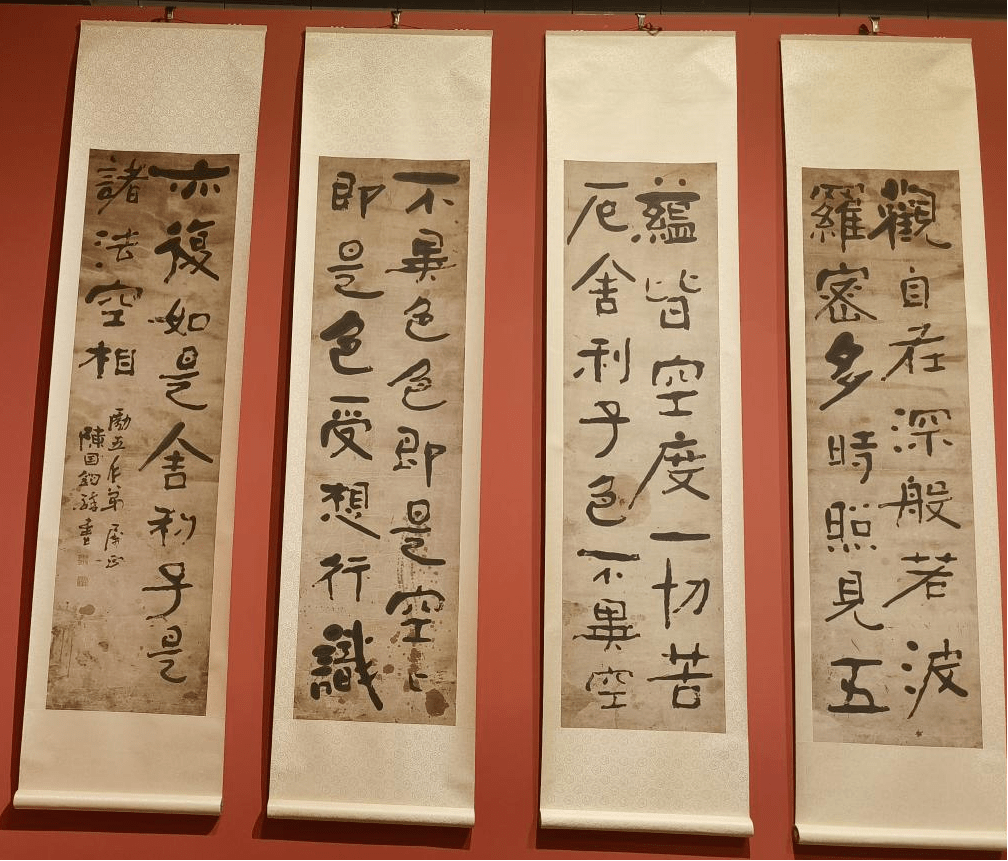 觀自在深般若波
羅密多時照見五
蘊皆空度一切苦
厄舍利子色不異空
不異色色即是空
即是色受想行識
亦複如是舍利子是
諸法空相
勵五仁弟属正
陳国鈞書